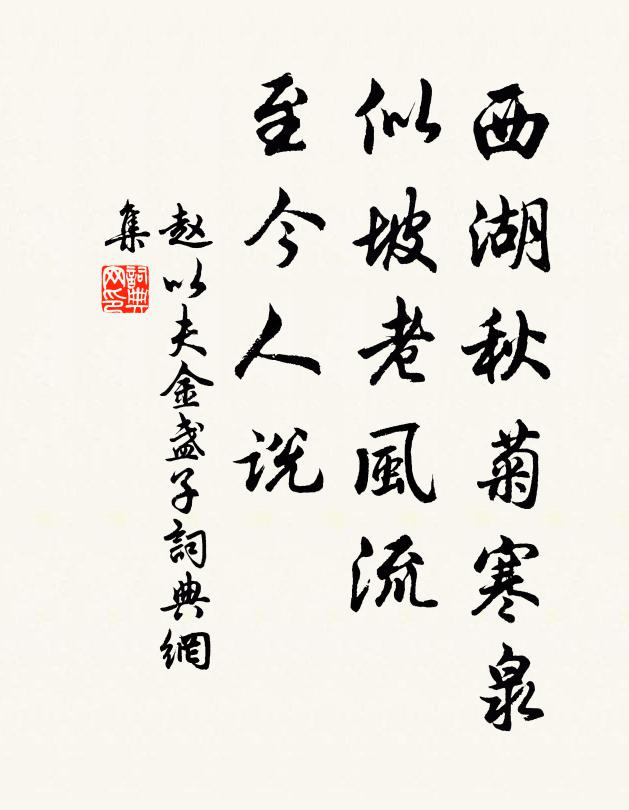 西湖秋菊寒泉
似坡老風流
至今人说
赵以夫金盏子詞典網
集
詞典網印